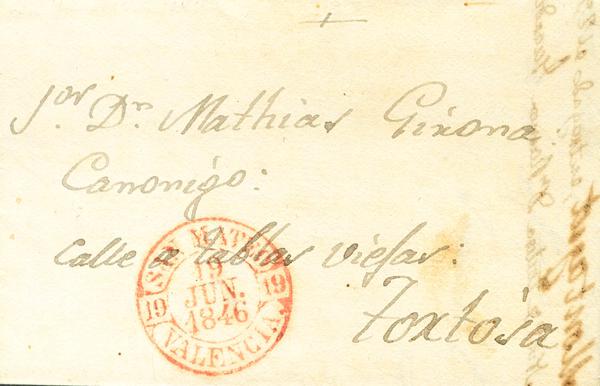 Sor. Dn. Mathias Girona
Canonigo:
calle de tablas viejas:
Tortosa
SAN MATEO
19
JUN.
1846
19 19
VALENCIA.